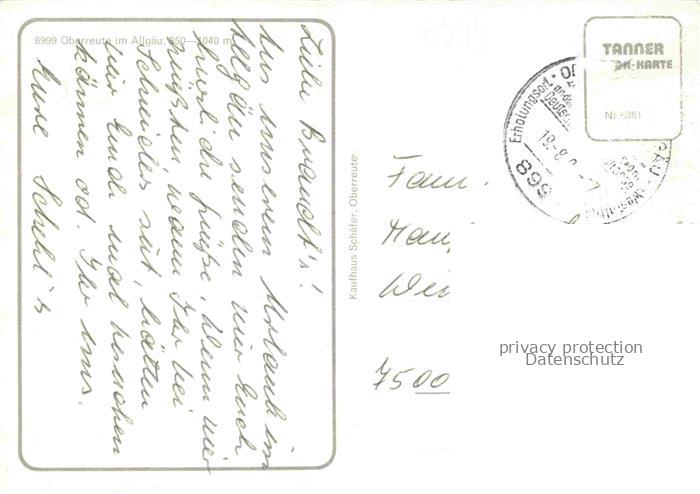 8999 Oberreute im Allgäu, 850—1040 m
Liebe Brandt's!
Aus unserem Urlaub im
Allgäu senden wir Euch
herzl. die Grüße. Wenn wir
wüßten wann Ihr bei
Schneider seit, hätten
wir Euch mal besuchen
können od. Ihr uns.
Eure Schehl's
Kaufhaus Schäfer, Oberreute
TANNER
KARTE
Nr. 6081
Erholungsort
18.-8.
Fam.
7500
privacy protection
Datenschutz